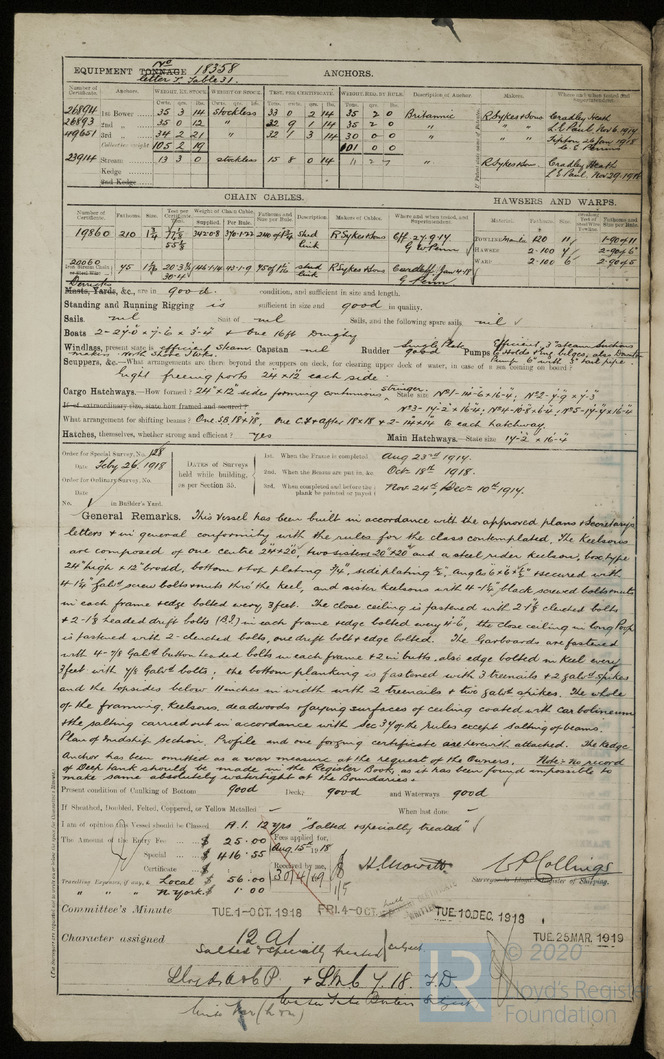 EQUIPMENT TONNAGE No 18358 ANCHORS.
letter T. Table 31.
Number of Certificate. Anchors. WEIGHT, EX. STOCK. WEIGHT OF STOCK. TEST, PER CERTIFICATE. WEIGHT, REQ. BY RULE. Description of Anchor. Makers. Where and when tested and Superintendent.
26894 1st Bower 35 3 14 Stockless 33 0 2 14 35 2 0 Britannic R Sykes & Sons Cradley Heath
26893 2nd „ 35 0 12 „ 32 9 1 14 35 2 0 „ „ L. E. Paul. Nov 6. 1917
49651 3rd „ 34 2 21 „ 32 1 3 14 30 0 0 „ „ Tipton 22 Jan 1918
Collective weight 105 2 19 101 0 0 G. E. Perrins
23914 Stream 13 3 0 stockless 15 8 0 14 11 2 7 „ R Sykes & Son Cradley Heath
Kedge L E Paul. Nov 29. 1916
2nd Kedge
CHAIN CABLES. HAWSERS AND WARPS.
Number of Certificate. Fathoms. Size. Test per Certificate. Weight of Chain Cable. Supplied. Per Rule. Fathoms and Size per Rule. Description. Makers of Cables. Where and when tested, and Superintendent. Material. Fathoms. Size. Fathoms and Size per Rule
19860 210 1 3/4 77 1/8 342-0-8 370-1-22 240 of 1 3/4 stud R Sykes & Sons Cff. 27.9.17. TOWLINE Manila 120 11 1-90 of 11
55 1/8 link G W Penn HAWSER 2-100 7 2-90 of 6
20060 WARP 2-100 6 2-90 of 5
45 1 1/4 stud link R Sykes & Sons Cardiff Jan 4-18
G Penn
Masts, Yards, &c., are in good. condition, and sufficient in size and length.
Standing and Running Rigging is sufficient in size and good in quality.
Sails. nil Suit of nil Sails, and the following spare sails nil
Boats 2-27.0 x 7-6 x 3-4 & one 16 ft Dinghy
Windlass, present state is efficient Steam Capstan nil Rudder Single Plate good Pumps
makers North Shore Works.
Scuppers, &c.—What arrangements are there beyond the scuppers on deck, for clearing upper deck of water, in case of a sea coming on board?
Eight freeing ports 24 x 12 each side.
Cargo Hatchways.—How formed? 24" x 12" sides forming continuous stringer. State size No1-14-6 x 16-4; No2-7-9 x 7-3
If of extraordinary size, state how framed and secured? No3-14-2 x 16-4; No4-10-8 x 6-4; No5-14-4 x 16-4
What arrangement for shifting beams? One SB 18 x 18, One C.F & after 18 x 18 & 2-14 x 14 to each hatchway
Hatches, themselves, whether strong and efficient? yes Main Hatchways.—State size 14-2 x 16-4
Order for Special Survey, No. 128
Date Feby 26. 1918
Order for Ordinary Survey, No.
Date
No. in Builder's Yard.
DATES of Surveys held while building, as per Section 35.
1st. When the Frame is completed Aug 23rd 1917.
2nd. When the Beams are put in, &c. Oct 18th 1918.
3rd. When completed and before the plank be painted or payed Nov 24th, Dec 10th 1917.
General Remarks. This vessel has been built in accordance with the approved plans & Secretary's
letters & in general conformity with the rules for the class contemplated. The Keelsons
are composed of one centre 24" x 20", two sisters 20" x 20" and a steel rider keelson, box type
24" high & 12" broad, bottom & top plating 3/4", side plating 1/2", angles 6 x 6 x 1/2" & secured with
4-1 1/4" Galvd screw bolts & nuts thro' the keel, and sister keelsons with 4-1 1/8" black screwed bolts & nuts
in each frame & edge bolted every 3 feet. The close ceiling is fastened with 2-1 1/8 clenched bolts
& 2-1 1/8 headed drift bolts in each frame & edge bolted every 4-6, the close ceiling in long Poop
is fastened with 2- clenched bolts, one drift bolt & edge bolted. The Garboards are fastened
with 4-7/8 Galvd button headed bolts in each frame & 2 in butts, also edge bolted in Keel every
3 feet with 7/8 Galvd bolts; the bottom planking is fastened with 3 treenails & 2 galvd spikes
and the topsides below 11 inches in width with 2 treenails & two galvd spikes. The whole
of the framing, Keelsons, deadwoods & faying surfaces of ceiling coated with carbolineum
& the salting carried out in accordance with Sec 34 of the rules except salting of beams.
Plan of Midship Section, Profile and one forging certificate are herewith attached. The Kedge
Anchor has been omitted as a war measure at the request of the Owners. Note:- no record
of Deep tank should be made in the Register Book, as it has been found impossible to
make same absolutely watertight at the Boundaries.
Present condition of Caulking of Bottom good Deck? good and Waterways good
If Sheathed, Doubled, Felted, Coppered, or Yellow Metalled – When last done –
I am of opinion this Vessel should be Classed A.1. 12 yrs "Salted & specially treated"
The Amount of the Entry Fee ... $ 25.00 Fees applied for,
Special ... $ 416.55 Aug 15th 1918
Certificate ... $ Received by me,
Travelling Expenses, if any, Local $ 56.00
„ „ N. York $ 1.00
Surveyor to Lloyd's Register of Shipping.
Committee's Minute TUE. 1-OCT. 1918 FRI. 4-OCT. TUE. 10. DEC. 1918 TUE. 25 MAR. 1919
Character assigned 12 A1
Salted & specially treated Subject
Lloyd's A & C P. + LMC 7. 18. F.D.
© 2020
Lloyd's Register
Foundation